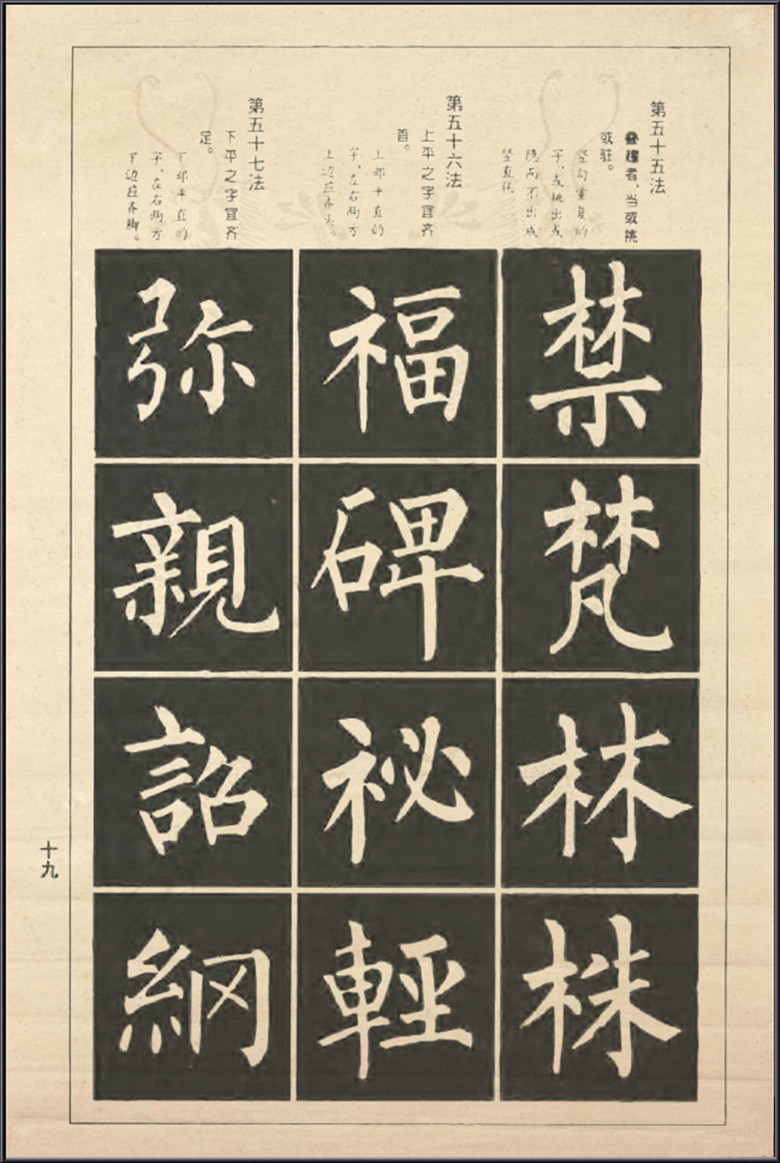 第五十五法
叠趯者，当或挑
或驻。
竖勾重复的
字，或挑出或
隐而不出成
竖直
第五十六法
上平之字宜齐
首。
上部平直的
字，左右两方
上边应齐头。
第五十七法
下平之字宜齐
足。
下部平直的
字，左右两方
下边应齐脚。
禁梵林株
福碑祕輕
弥親詔䋄
十九